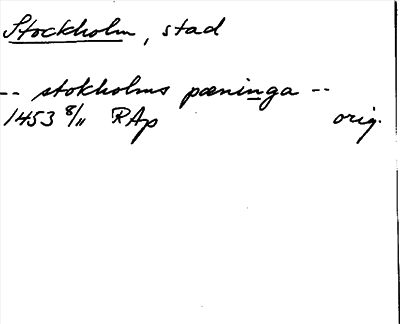 Stockholm, stad
-- stokholms pæninga --
1453 8/11 RAp orig.